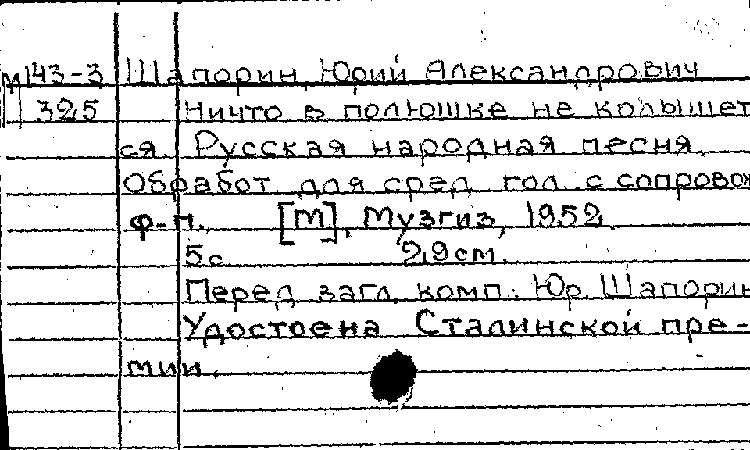 М143-3 Шапорин, Юрий Александрович
325 Ничто в полюшке не колышет
ся. Русская народная песня.
Обработ. для сред. гол. с сопровож
ф-п. [М], Музгиз, 1952.
5 с. 29 см.
Перед загл. комп.: Юр. Шапорин
Удостоена Сталинской пре-
мии.